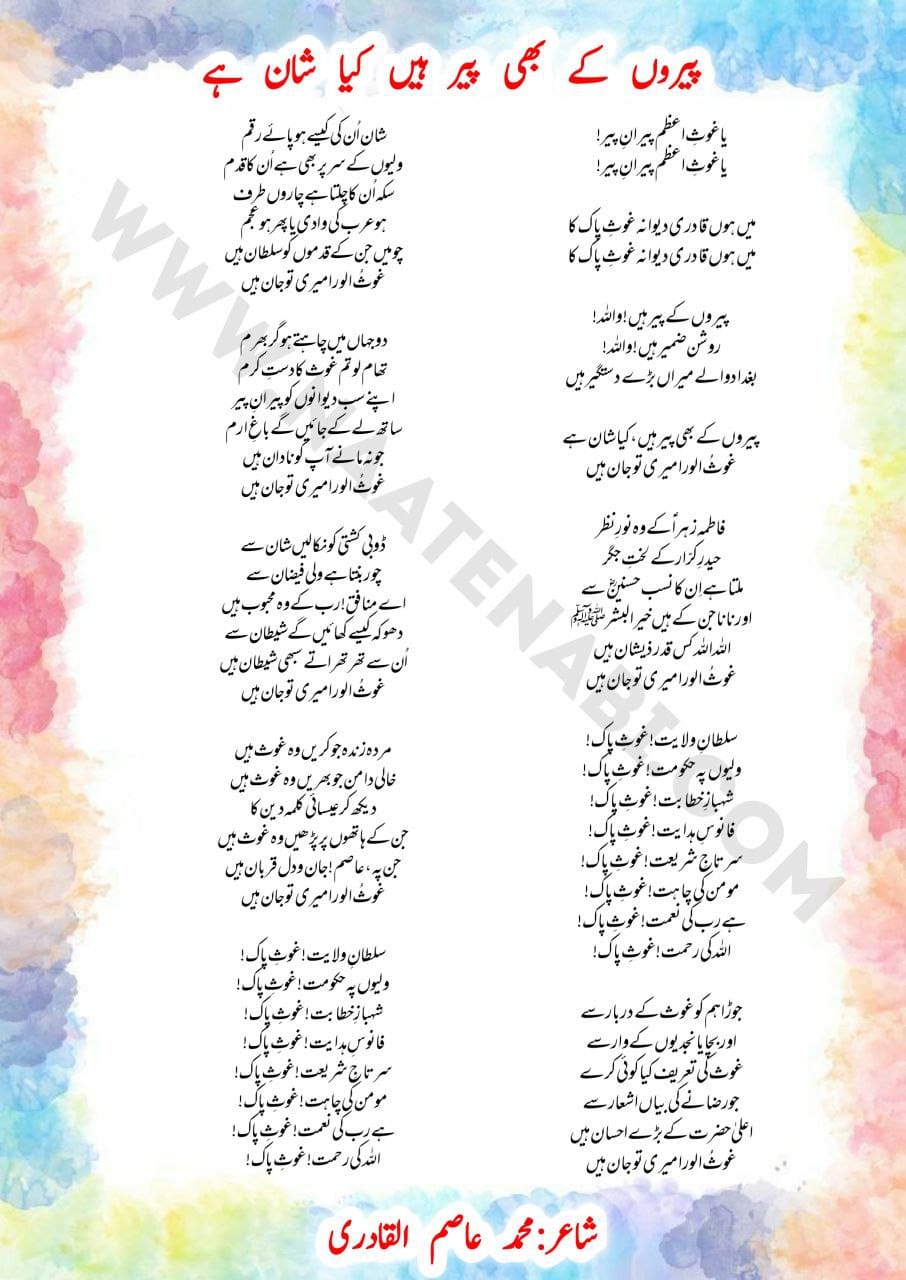 پیروں کے بھی پیر ہیں کیا شان ہے
یا غوثِ اعظم پیرانِ پیر!
یا غوثِ اعظم پیرانِ پیر!
میں ہوں قادری دیوانہ غوثِ پاک کا
میں ہوں قادری دیوانہ غوثِ پاک کا
پیروں کے پیر ہیں! واللہ!
روشن ضمیر ہیں! واللہ!
بغداد والے میراں بڑے دستگیر ہیں
پیروں کے بھی پیر ہیں، کیا شان ہے
غوثُ الورا میری تو جان ہیں
فاطمہ زہراؑ کے وہ نورِ نظر
حیدرِ کرّار کے لختِ جگر
ملتا ہے اِن کا نسب حسنینؓ سے
اور نانا جن کے ہیں خیر البشر ﷺ
اللہ اللہ کس قدر ذیشان ہیں
غوثُ الورا میری تو جان ہیں
سلطانِ ولایت! غوثِ پاک!
ولیوں پہ حکومت! غوثِ پاک!
شہبازِ خطابت! غوثِ پاک!
فانوسِ ہدایت! غوثِ پاک!
سرتاجِ شریعت! غوثِ پاک!
مومن کی چاہت! غوثِ پاک!
ہے رب کی نعمت! غوثِ پاک!
اللہ کی رحمت! غوثِ پاک!
جوڑا ہم کو غوث کے دربار سے
اور بچایا نجدیوں کے وار سے
غوث کی تعریف کیا کوئی کرے
جو رضا نے کی بیاں اشعار سے
اعلیٰ حضرت کے بڑے احسان ہیں
غوثُ الورا میری تو جان ہیں
شان اُن کی کیسے ہو پائے رقم
ولیوں کے سر پر بھی ہے اُن کا قدم
سکہ اُن کا چلتا ہے چاروں طرف
ہو عرب کی وادی یا پھر ہو عجم
چومیں جن کے قدموں کو سلطان ہیں
غوثُ الورا میری تو جان ہیں
دو جہاں میں چاہتے ہو گر بھرم
تھام لو تم غوث کا دستِ کرم
اپنے سب دیوانوں کو پیرانِ پیر
ساتھ لے کے جائیں گے باغِ ارم
جو نہ مانے آپ کو نادان ہیں
غوثُ الورا میری تو جان ہیں
ڈوبی کشتی کو نکالیں شان سے
چور بنتا ہے ولی فیضان سے
اے منافق! رب کے وہ محبوب ہیں
دھوکہ کیسے کھائیں گے شیطان سے
اُن سے تھر تھراتے سبھی شیطان ہیں
غوثُ الورا میری تو جان ہیں
مردہ زندہ جو کریں وہ غوث ہیں
خالی دامن جو بھریں وہ غوث ہیں
دیکھ کر عیسائی کلمہ دین کا
جن کے ہاتھوں پر پڑھیں وہ غوث ہیں
جن پہ، عاصم! جان و دل قربان ہیں
غوثُ الورا میری تو جان ہیں
سلطانِ ولایت! غوثِ پاک!
ولیوں پہ حکومت! غوثِ پاک!
شہبازِ خطابت! غوثِ پاک!
فانوسِ ہدایت! غوثِ پاک!
سرتاجِ شریعت! غوثِ پاک!
مومن کی چاہت! غوثِ پاک!
ہے رب کی نعمت! غوثِ پاک!
اللہ کی رحمت! غوثِ پاک!
شاعر: محمد عاصم القادری
WWW.NAATENABI.COM